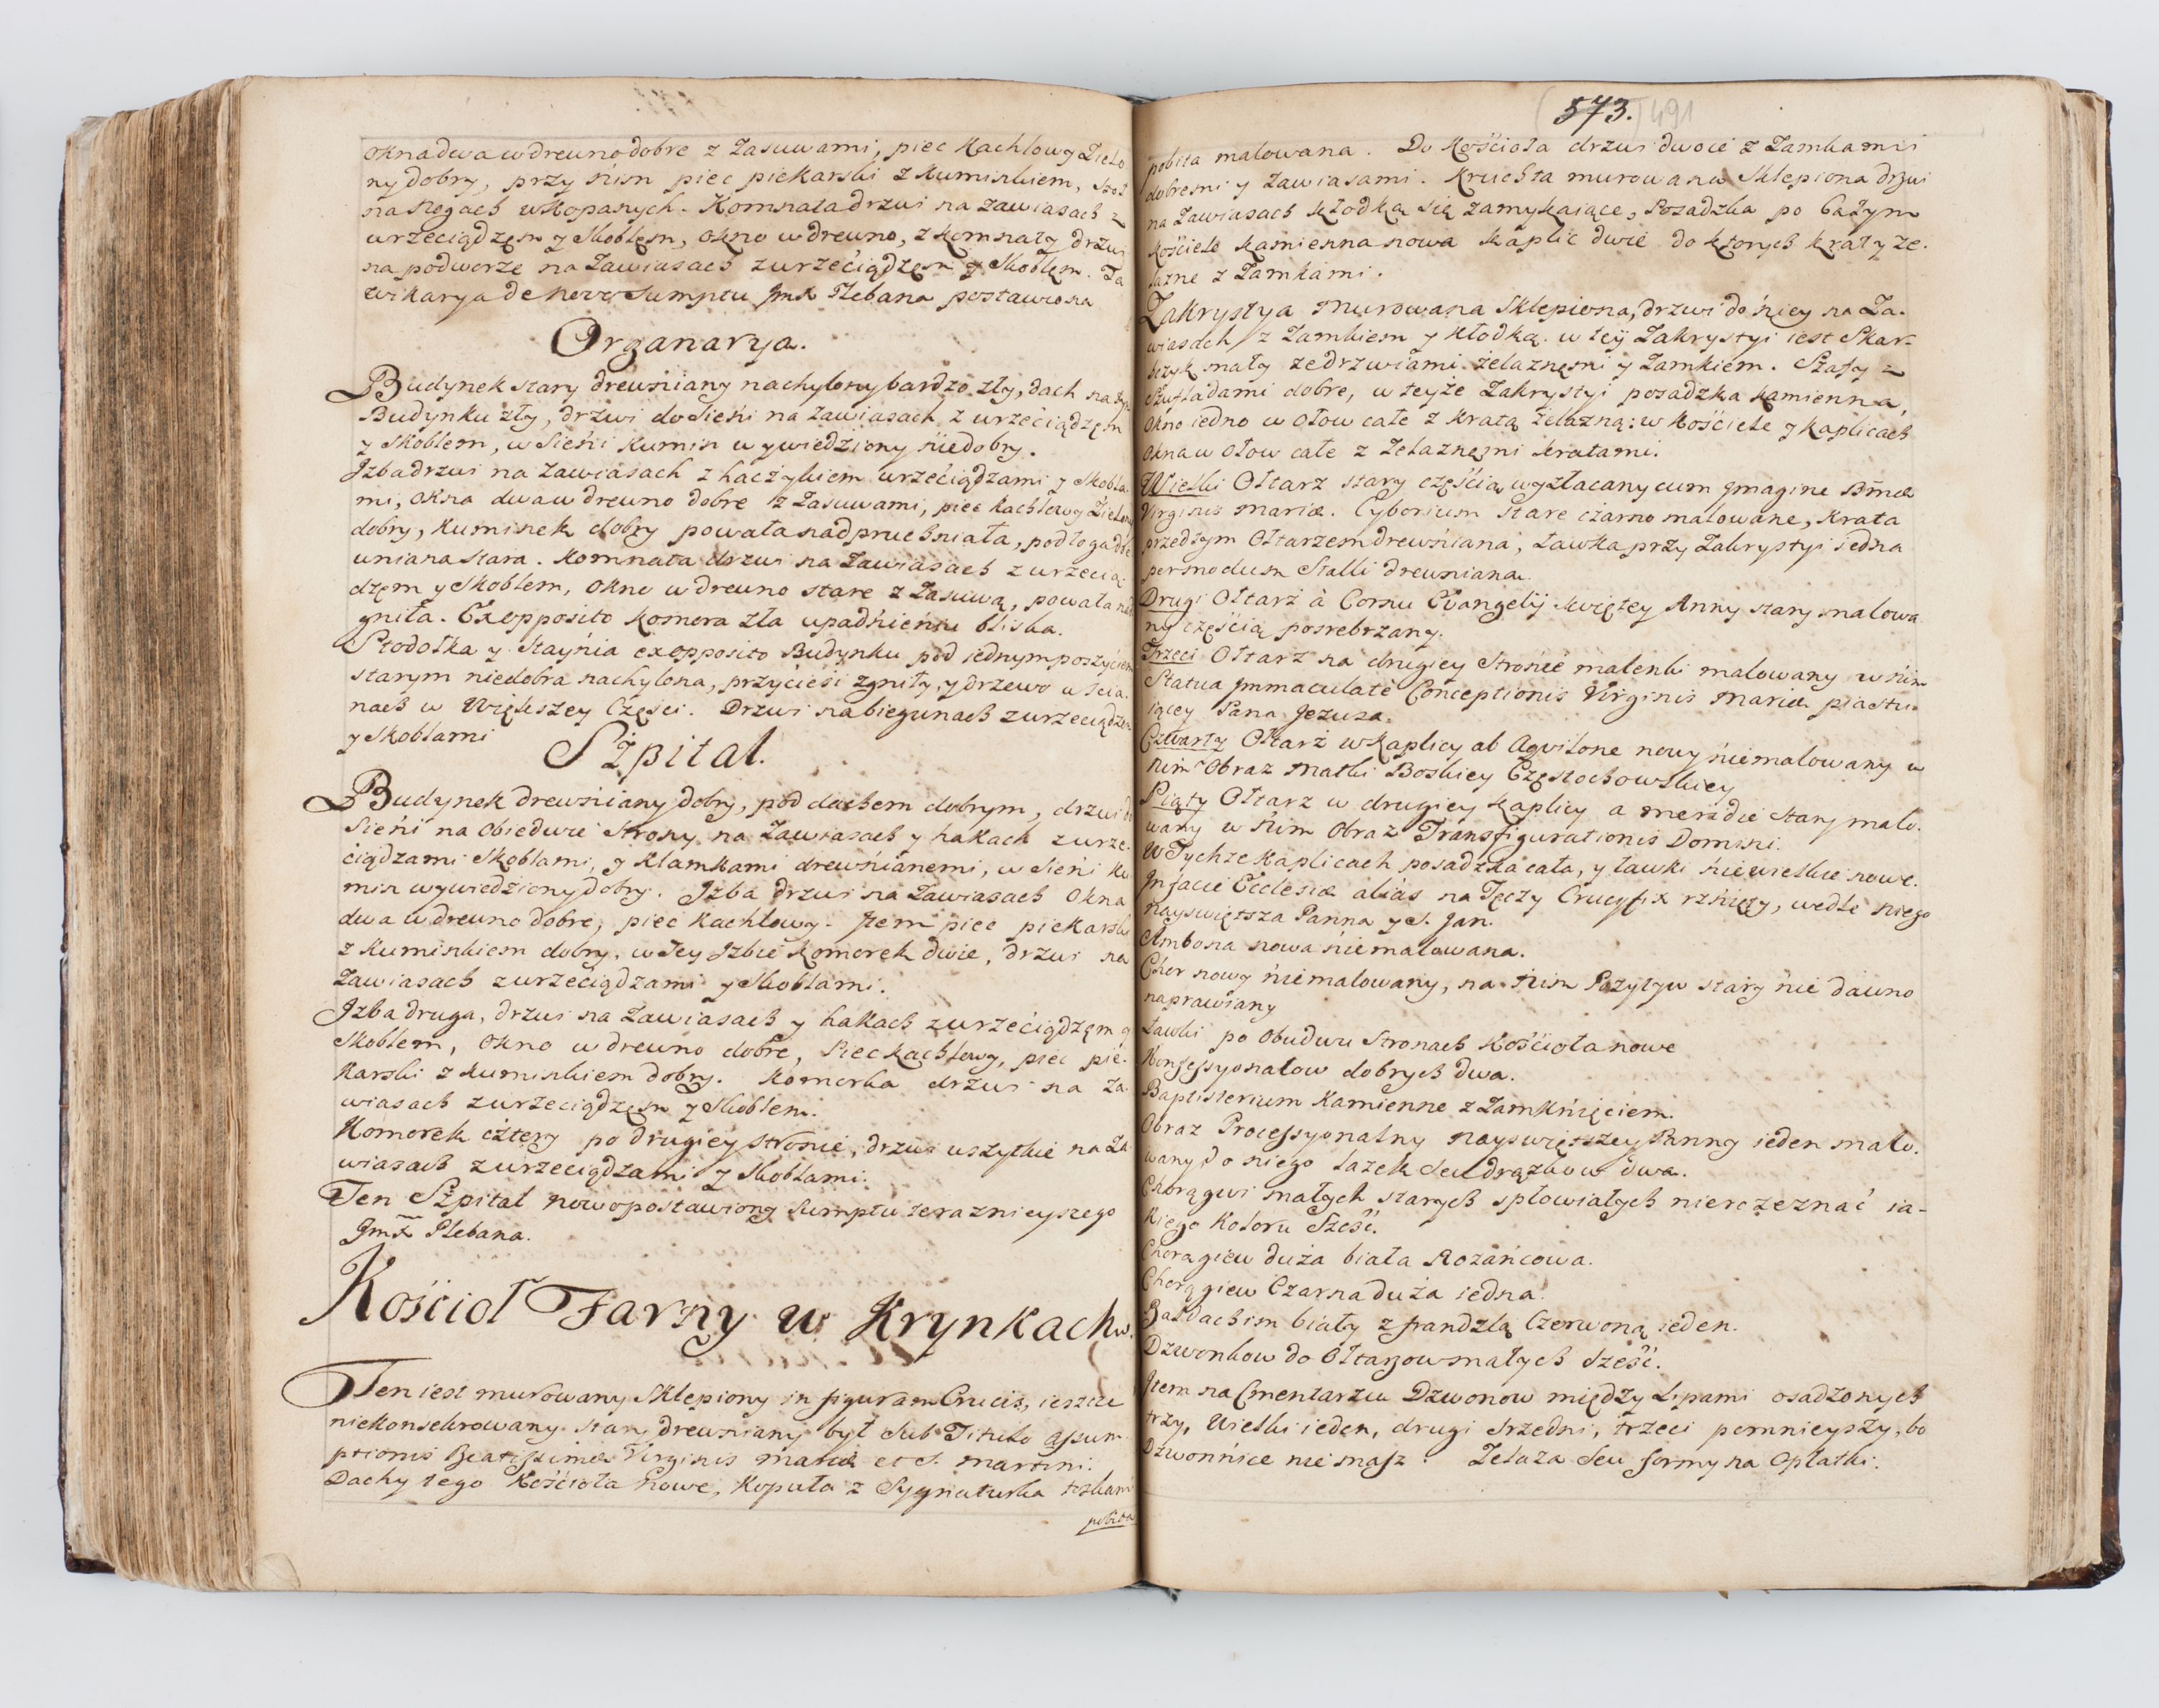 okna dwa w drewno dobre z Zasuwami, piec Kachlowy Zielo
ny dobry, przy nim piec piekarski z Kuminkiem,
na nogach wkopanych. Komnata drzwi na zawiasach z
wrzeciądzem y Skoblem, okno w drewno, z komnaty drzwi
na podworze na Zawiasach z wrzeciądzem y Skoblem. Ta
wikarya de novo Sumptu Jmx Plebana postawiona
Organarya.
Budynek stary drewniany nachylony bardzo zły, dach na tym
Budynku zły, drzwi do Sieni na zawiasach z wrzeciądzem
y Skoblem, w Sieni Kumin wywiedziony niedobry.
Izba drzwi na zawiasach z haczykiem wrzeciądzami y Skobla
mi, okna dwa w drewno dobre z Zasuwami, piec kachlowy Zielony
dobry, Kuminek dobry powała nadpruchniała, podłoga dre
wniana stara. Komnata drzwi na Zawiasach z wrzecią-
dzem y Skoblem, okno w drewno stare z Zasuwą, powała nad
gniła. Ex opposito komora zła upadnieniu bliska.
Stodołka y Staynia ex opposito Budynku pod iednym poszyciem
starym niedobra nachylona, przyciesi zgniły, y drzewo w scia-
nach w Większey Części. Drzwi na biegunach z wrzeciądzem
y Skoblami
Szpital.
Budynek drewniany dobry, pod dachem dobrym, drzwi do
Sieni na obiedwie Strony na Zawiasach y hakach z wrze-
ciądzami Skoblami, y Klamkami drewnianemi, w Sieni Ku
min wywiedziony dobry. Izba drzwi na Zawiasach okna
dwa w drewno dobre, piec Kachlowy. Item piec piekarski
z Kuminkiem dobry, w Tey Izbie Komorek dwie, drzwi na
Zawiasach z wrzeciądzami y Skoblami.
Izba druga, drzwi na Zawiasach y hakach z wrzeciądzem y
Skoblem, okno w drewno dobre, Piec kachlowy, piec pie-
karski z Kuminkiem dobry. Komorka drzwi na Za-
wiasach z wrzeciądzem y Skoblem.
Komorek cztery po drugiey stronie, drzwi wszytkie na Za
wiasach z wrzeciądzami y Skoblami.
Ten Szpital nowo postawiony Sumptu teraznieyszego
Jmx Plebana.
Kościoł Farny w Krynkach
Ten iest murowany Sklepiony in figuram Crucis, ieszcze
niekonsekrowany stary drewniany był Sub Titulo Assum-
ptionis Beatissimæ Virginis Mariæ et S. Martini.
Dachy tego Kościoła nowe, Kopuła z Sygnaturka
pobita
573. 491
pobita malowana. Do Kościoła drzwi dwoie z Zamkami
dobremi y Zawiasami. Kruchta murowana Sklepiona drzwi
na Zawiasach kłodką się zamykaiące, Posadzka po Całym
Kościele kamienna nowa kaplic dwie do ktorych kraty że-
lazne z Zamkami.
Zakrystya murowana Sklepiona, drzwi do niey na Za-
wiasach z Zamkiem y kłodką. w tey Zakrystyi iest Skar-
bczyk mały ze drzwiami żelaznemi y Zamkiem. Szafy z
Szufladami dobre, w teyże Zakrystyi posadzka kamienna,
okno iedno w ołow całe z kratą żelazną: w Kościele y Kaplicach
okna w ołow całe z Zelaznemi kratami.
Wielki Ołtarz stary częścią wyzłacany cum Imagine Bmæ
Virginis Mariæ. Cyborium Stare czarno malowane, Krata
przed tym Ołtarzem drewniana, Ławka przy Zakrystyi iedna
per modum Stalli drewniana.
Drugi Ołtarz à Cornu Evangelij Swiętey Anny stary malowa
ny częścią posrebrzany.
Trzeci Ołtarz na drugiey Stronie malenki malowany w nim
Statua Immaculatæ Conceptionis Virginis Mariæ piastu-
iącey Pana Jezusa.
Czwarty Ołtarz w Kaplicy ab Aquilone nowy niemalowany w
nim Obraz Matki Boskiey Częstochowskiey
Piąty Ołtarz w drugiey Kaplicy a meridie Stary malo-
wany w nim Obraz Transfigurationis Domini.
W Tychże Kaplicach posadzka cała, y ławki niewielkie nowe.
In facie Ecclesiæ alias na Tęczy Crucyfix rżnięty, wedle niego
Nayswiętsza Panna y S. Jan.
Ambona nowa niemalowana.
Chor nowy niemalowany, na nim Pozytyw stary nie dawno
naprawiany
Ławki po obudwu Stronach Kościoła nowe
Konfessyonałow dobrych dwa.
Baptisterium Kamienne z Zamknięciem.
Obraz Processyonalny Nayswiętszey Panny ieden malo-
wany, do niego Lazek seu drążkow dwa.
Chorągwi małych starych spłowiałych nierozeznać ia-
kiego Koloru Sześć.
Chorągiew duża biała Rozańcowa.
Chorągiew Czarna duża iedna.
Baldachim biały z frandzlą Czerwoną ieden.
Dzwonkow do Ołtarzow małych Sześć.
Item na Cmentarzu Dzwonow między Lipami osadzonych
trzy, Wielki ieden, drugi Srzedni, trzeci pomnieyszy, bo
Dzwonnice niemasz. Zelaza seu formy na Opłatki.